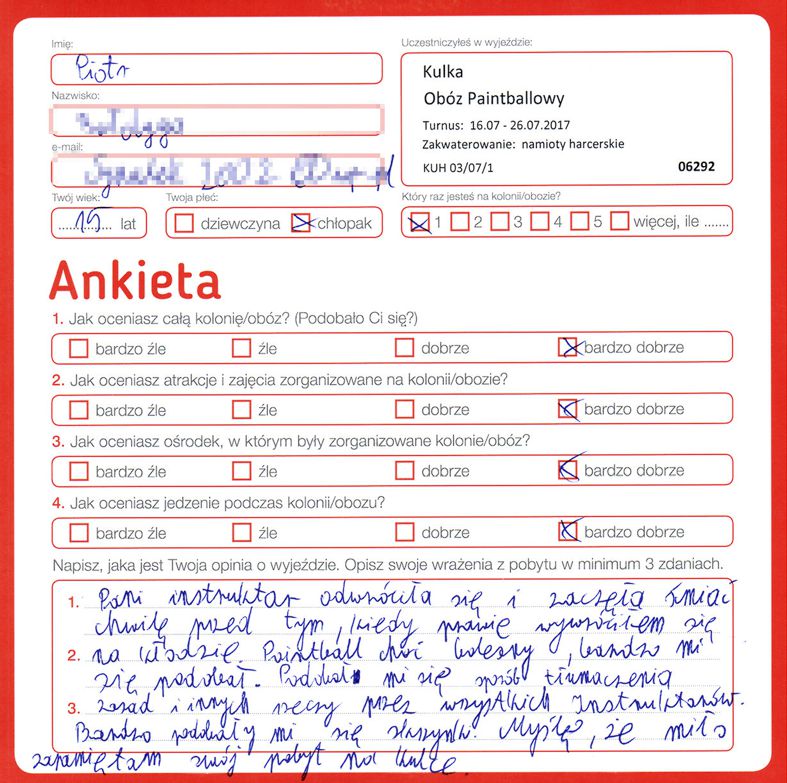 Imię:
Uczestniczyłeś w wyjeździe:
Piotr
Kulka
Obóz Paintballowy
Turnus: 16.07 - 26.07.2017
Zakwaterowanie: namioty harcerskie
KUH 03/07/1 06292
Nazwisko:
e-mail:
Twój wiek:
Twoja płeć:
Który raz jesteś na kolonii/obozie?
15 lat
dziewczyna chłopak
1 2 3 4 5 więcej, ile .......
Ankieta
1. Jak oceniasz całą kolonię/obóz? (Podobało Ci się?)
bardzo źle źle dobrze bardzo dobrze
2. Jak oceniasz atrakcje i zajęcia zorganizowane na kolonii/obozie?
bardzo źle źle dobrze bardzo dobrze
3. Jak oceniasz ośrodek, w którym były zorganizowane kolonie/obóz?
bardzo źle źle dobrze bardzo dobrze
4. Jak oceniasz jedzenie podczas kolonii/obozu?
bardzo źle źle dobrze bardzo dobrze
Napisz, jaka jest Twoja opinia o wyjeździe. Opisz swoje wrażenia z pobytu w minimum 3 zdaniach.
1. Pani instruktor odwróciła się i zaczęła śmiać
chwilę przed tym, kiedy prawie wywróciłem się
2. na kłodzie. Paintball choć bolesny, bardzo mi
się podobał. Podobał mi się sposób tłumaczenia
3. zasad i innych rzeczy przez wszystkich Instruktorów.
Bardzo podobały mi się skrzynki. Myślę, że miło
zapamiętam swój pobyt na kulce.